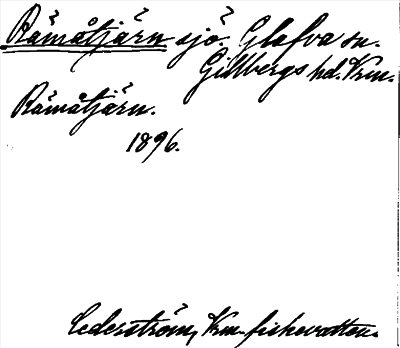 Råmåtjärn sjö. Glafva sn.
Gillbergs hd. Vrm.
Råmåtjärn.
1896.
Cederström, Vrm. fiskevatten.